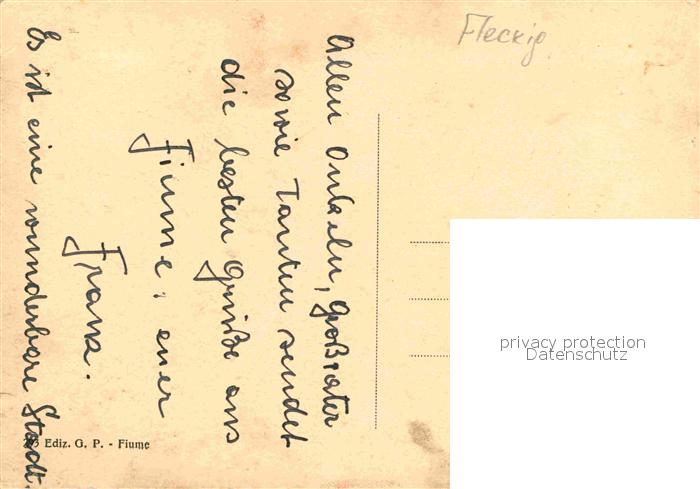 Fleckig
Allen Onkeln, Großvater
sowie Tanten sendet
die besten Grüße aus
Fiume, euer
Franz.
Es ist eine wunderbare Stadt.
Ediz. G. P. - Fiume
privacy protection
Datenschutz